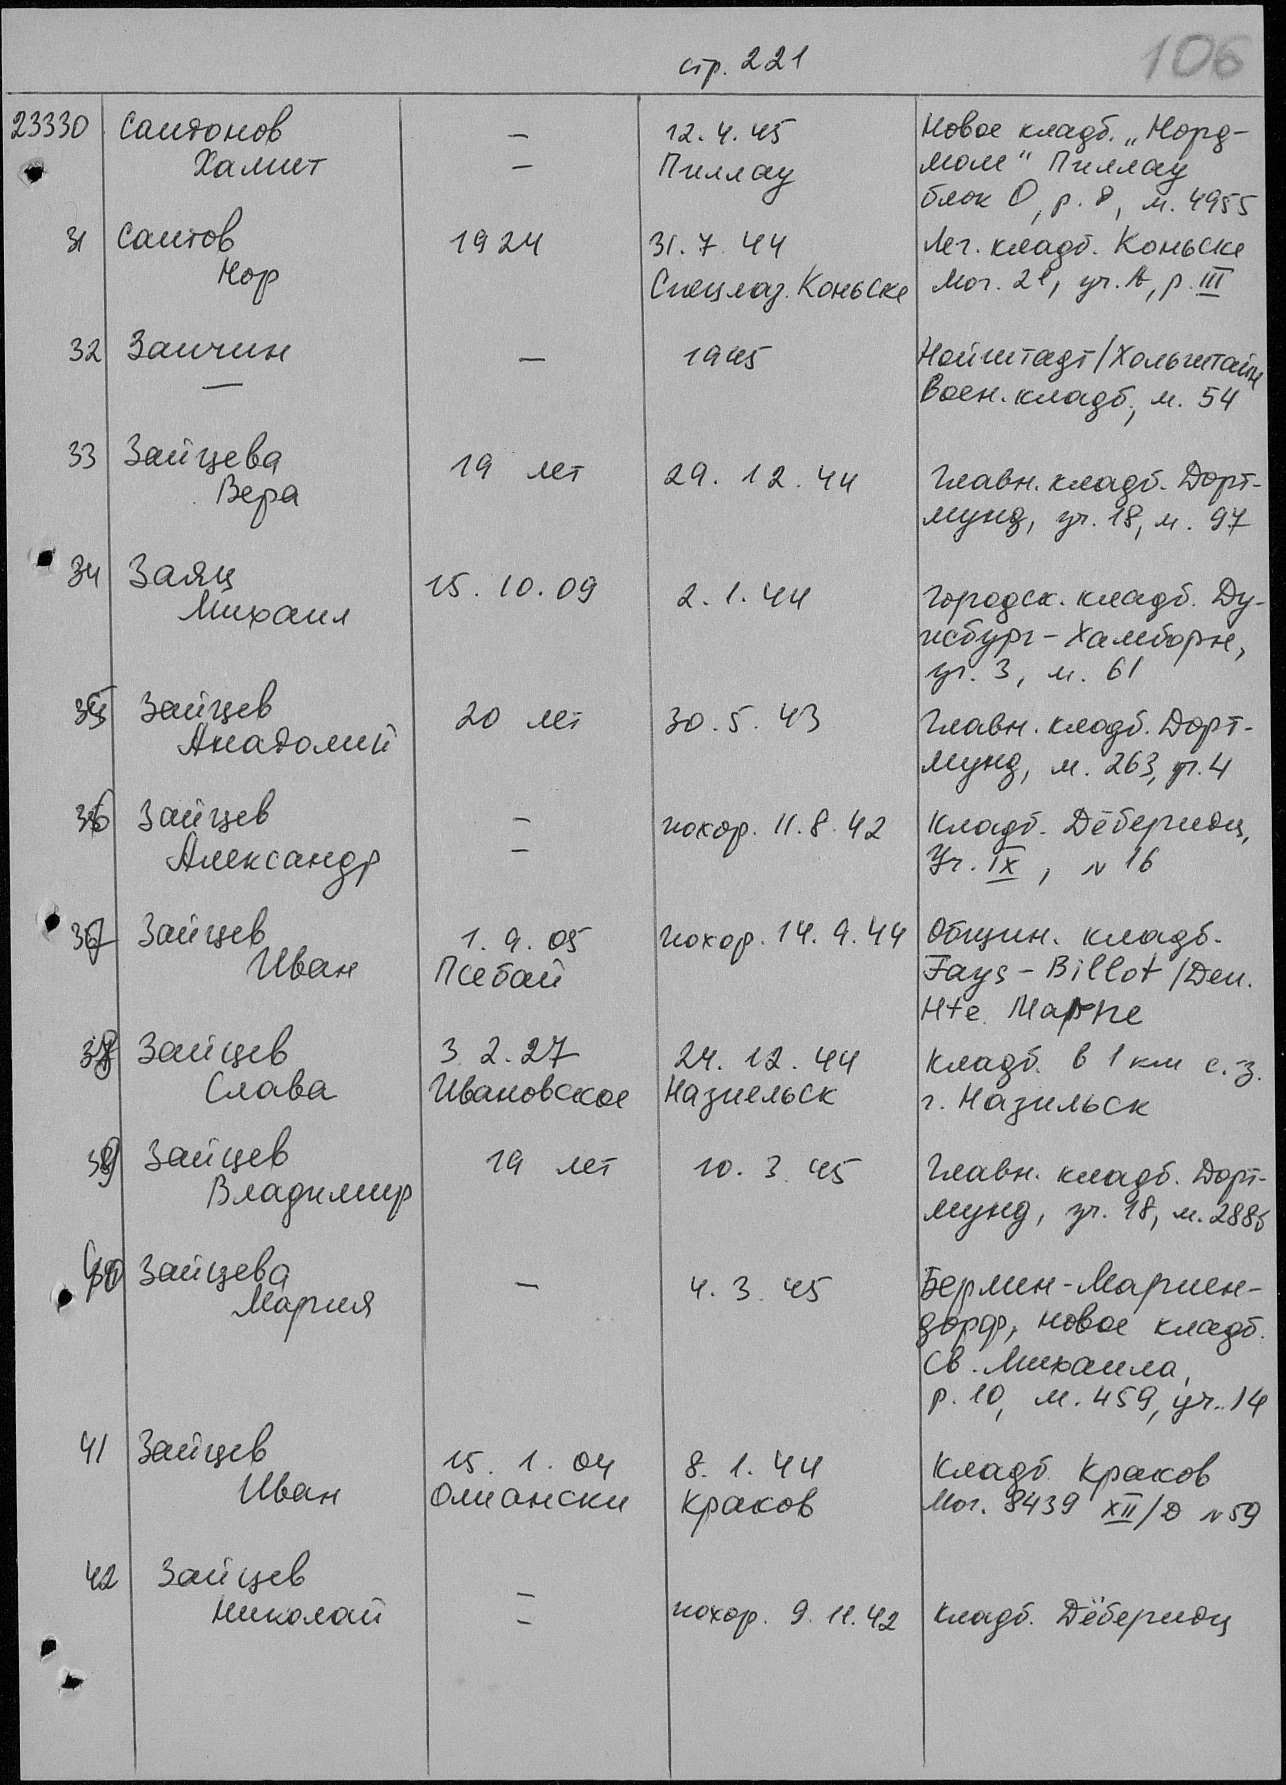 стр. 221
106
23330 Саидонов — 12.4.45 Новое кладб. „Норд-
Халит — Пиллау моле" Пиллау
блок О, р. 8, м. 4955
31 Саитов 1924 31.7.44 Лег. кладб. Коньске
Нор Спецлаз. Коньске Мог. 21, уч. А, р. III
32 Заичин — 1945 Нойштадт/Хольштайн
— Воен. кладб., м. 54
33 Зайцева 19 лет 29.12.44 Главн. кладб. Дорт-
Вера мунд, уч. 18, м. 97
34 Заяц 15.10.09 2.1.44 Городск. кладб. Ду-
Михаил исбург-Хамборн,
уч. 3, м. 61
35 Зайцев 20 лет 30.5.43 Главн. кладб. Дорт-
Анадолий мунд, м. 263, уч. 4
36 Зайцев — похор. 11.8.42 Кладб. Дёбериц,
Александр — Уч. IX, N 16
37 Зайцев 1.9.05 похор. 14.9.44 Общин. кладб.
Иван Псебай Fays-Billot/Деп.
Hte. Марне
38 Зайцев 3.2.27 24.12.44 Кладб. в 1 км с.-з.
Слава Ивановское Назиельск г. Назильск
39 Зайцев 19 лет 10.3.45 Главн. кладб. Дорт-
Владимир мунд, уч. 18, м. 288б
40 Зайцева — 4.3.45 Берлин-Мариен-
Мария дорф, новое кладб.
Св. Михаила,
р. 10, м. 459, уч. 14
41 Зайцев 15.1.04 8.1.44 Кладб. Краков
Иван Олиански Краков Мог. 8439 XII/D N 59
42 Зайцев — похор. 9.11.42 кладб. Дёбериц
Николай —